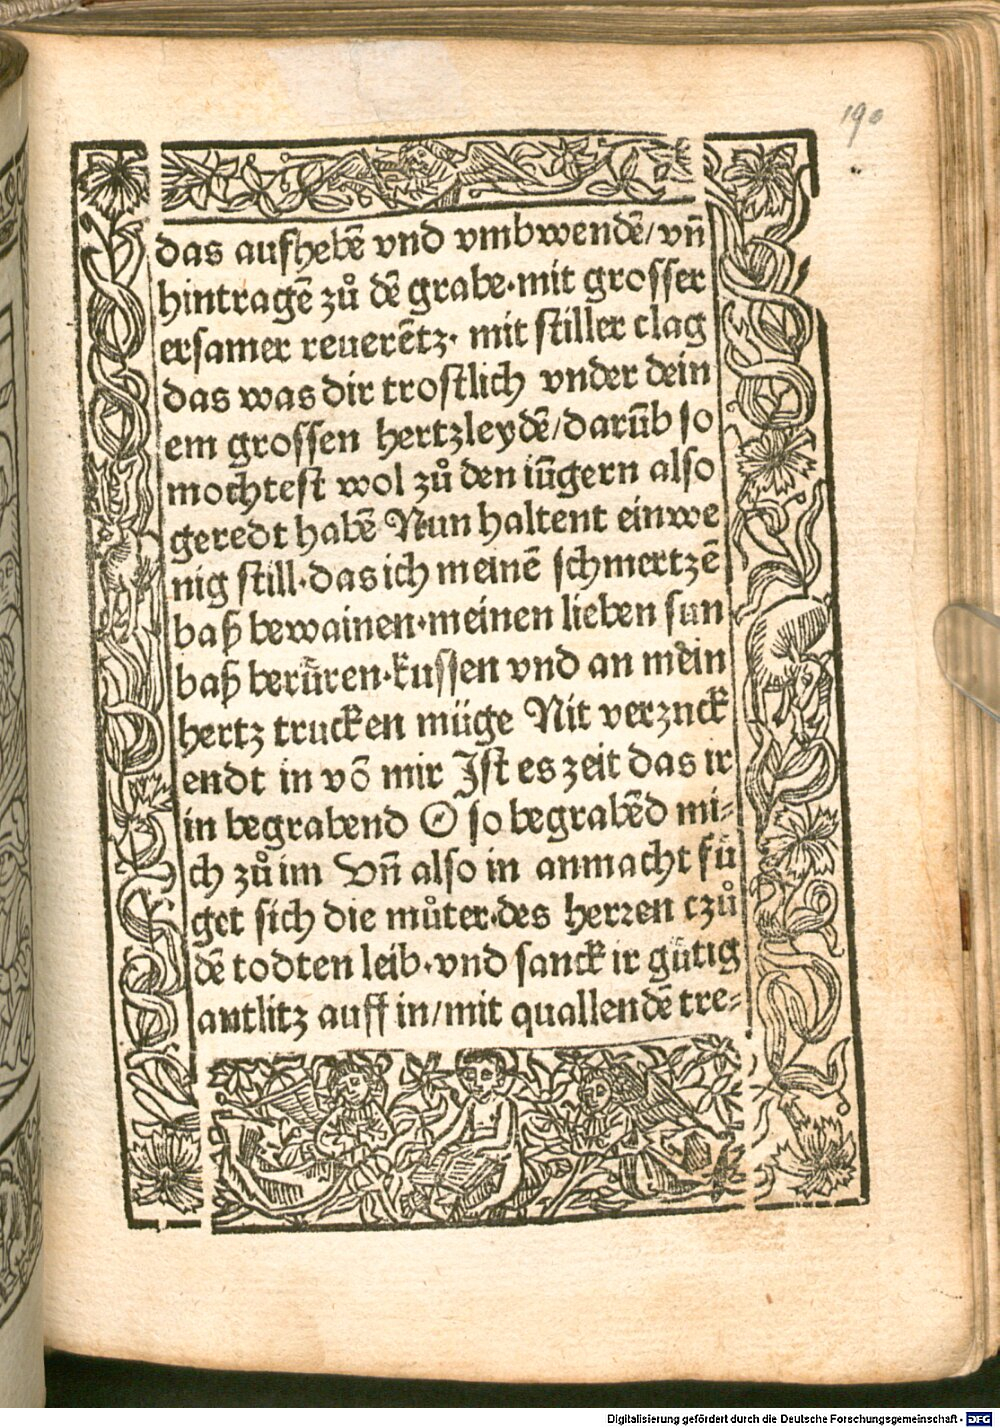 190
das aufhebē vnd vmbwendē/vn̄
hintragē zů dē grabe·mit grosser
ersamer reuerētz· mit stiller clag
das was dir trostlich vnder dein
em grossen hertzleydē/darūb so
mochtest wol zů den iūgern also
geredt habē Nun haltent einwe
nig still·das ich meinē schmertzē
baß bewainen·meinen lieben sun
baß berüren·kussen vnd an mein
hertz trucken müge Nit verznck
endt in vō mir Ist es zeit das ir
in begrabend O so begrabēd mi⸗
ch zů im Vn̄ also in anmacht fü
get sich die můter·des herren czů
dē todten leib·vnd sanck ir gütig
antlitz auff in/mit quallendē tre⸗
Digitalisierung gefördert durch die Deutsche Forschungsgemeinschaft - DFG